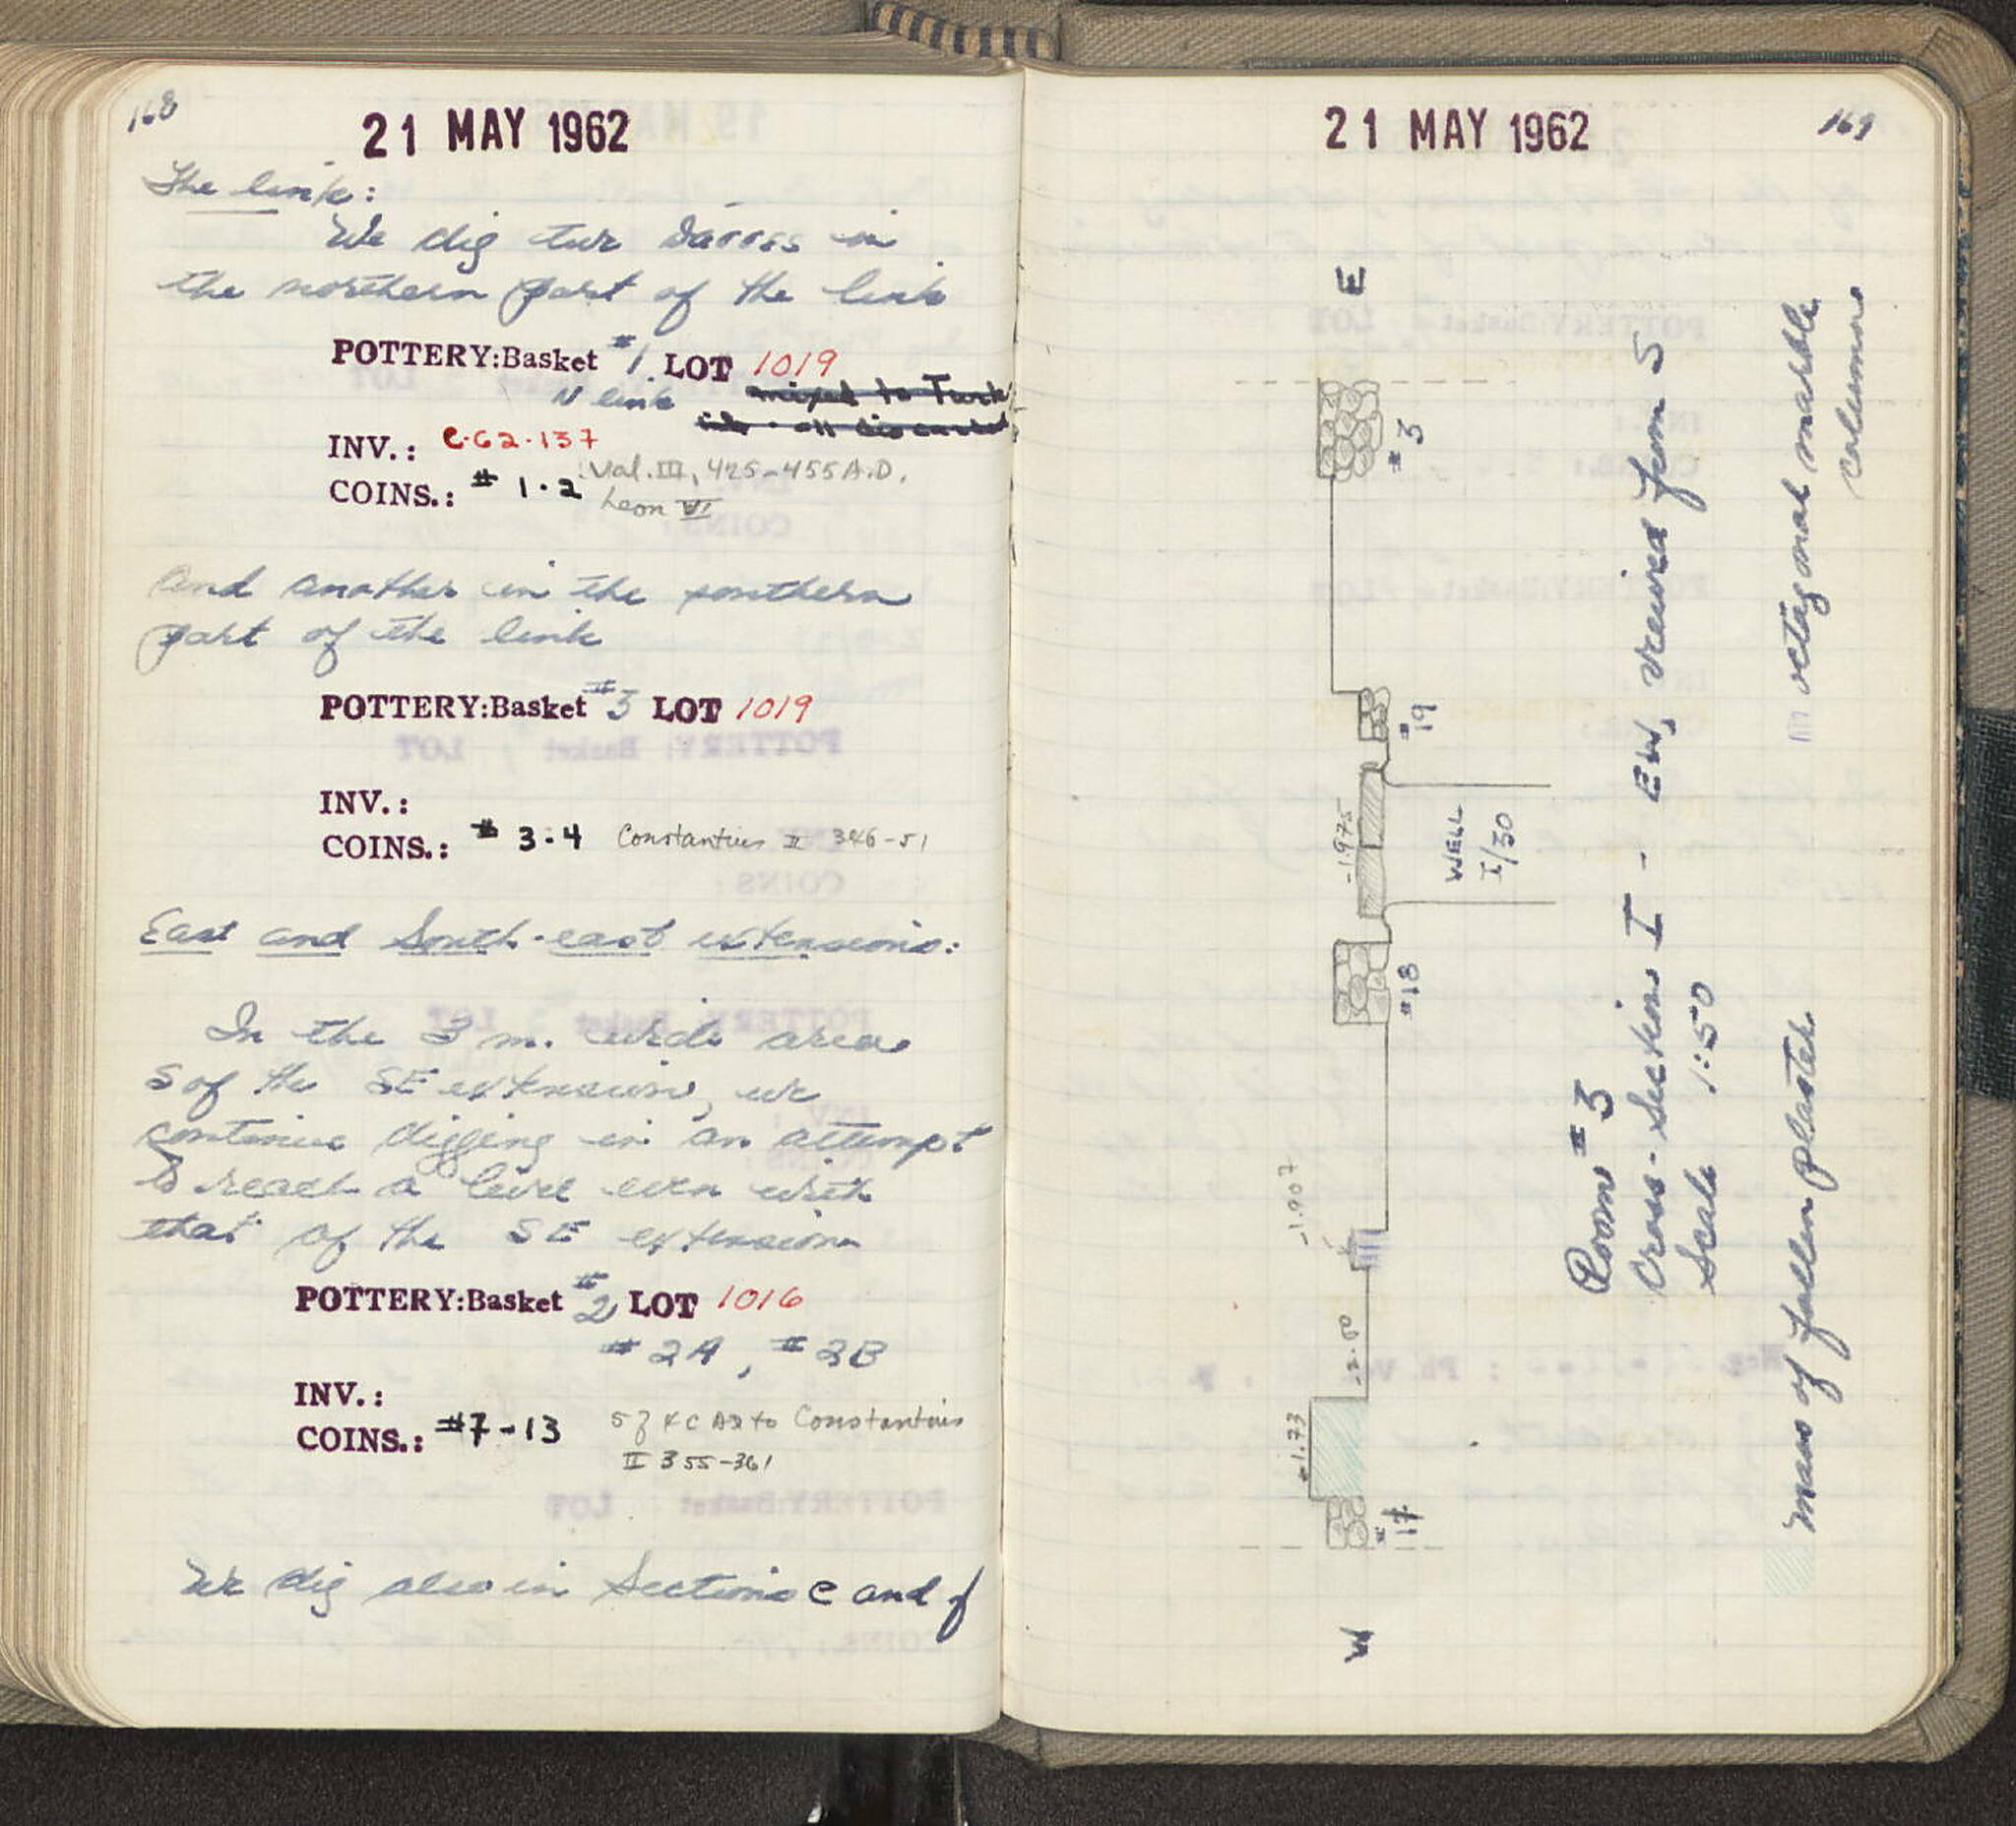 168
21 MAY 1962
The link:
We dig two  in
the northern part of the link
POTTERY:Basket #1 LOT 1019
N link mixed to Turk
INV.: C-62-137
Val. III, 425-455 A.D.
COINS.: # 1-2
Leon VI
and another in the southern
part of the link
POTTERY:Basket #3 LOT 1019
INV.:
COINS.: # 3-4 Constantius II 346-51
East and South-east extensions:
In the 3 m. wide area
S of the SE extension, we
continue digging in an attempt
to reach a level even with
that of the SE extension
POTTERY:Basket #2 LOT 1016
#2A, #2B
INV.:
COINS.: #7-13 AD to Constantius
II 355-361
We dig also in Sections e and f
21 MAY 1962
169
E
#3
#19
-1.975
WELL
I/30
#18
-1.907
-2.00
-1.73
#17
W
Room #3
Cross-Section I - EW, viewed from S
Scale 1:50
mass of fallen plaster
octagonal marble
columns